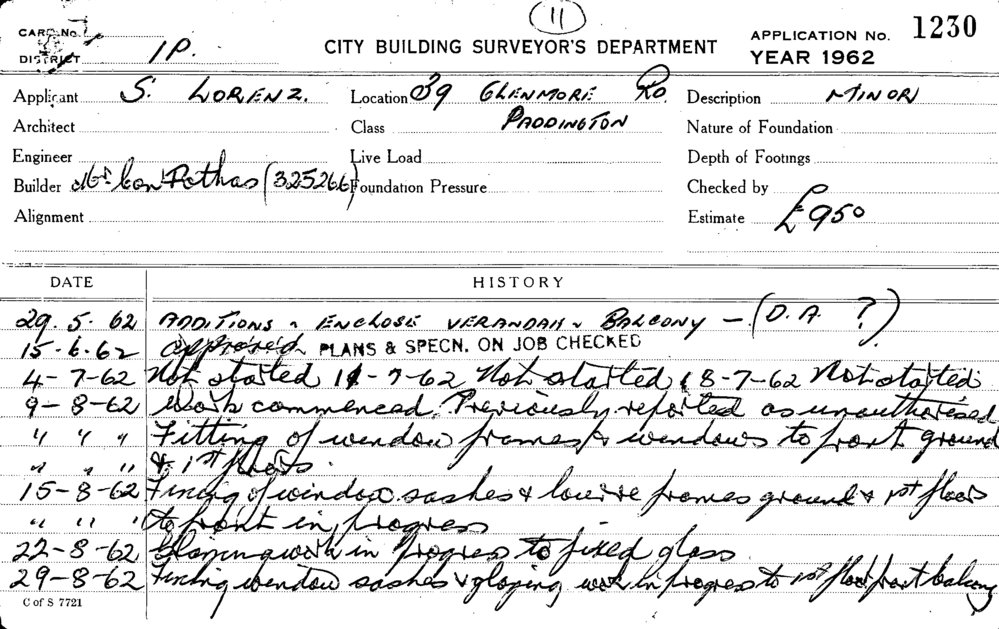 11
CARD No.
DISTRICT 1P.
CITY BUILDING SURVEYOR'S DEPARTMENT
APPLICATION No. 1230
YEAR 1962
Applicant S. LORENZ. Location 39 GLENMORE RD. Description MINOR
Architect Class PADDINGTON Nature of Foundation
Engineer Live Load Depth of Footings
Builder Con Pothas (325266) Foundation Pressure Checked by
Alignment Estimate £950
DATE HISTORY
29.5.62 ADDITIONS ENCLOSE VERANDAH BALCONY — (D.A. ?)
15-6-62 approved PLANS & SPECN. ON JOB CHECKED
4-7-62 Not started 11-7-62 Not started 18-7-62 Not started
9-8-62 Work commenced. Previously reported as unauthorised
" " " Fitting of window frames & windows to front ground
" " " & 1st floors.
15-8-62 Fixing of window sashes & louvre frames ground & 1st floors
" " " to front in progress
22-8-62 Glazing work in progress to fixed glass
29-8-62 Fixing window sashes & glazing work in progress to 1st floor front balcony
C of S 7721